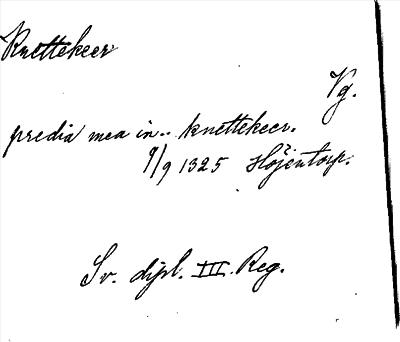 Knettekeer
Vg.
predia mea in.. knettekeer.
9/9 1325 Höjentorp.
Sv. dipl. III. Reg.